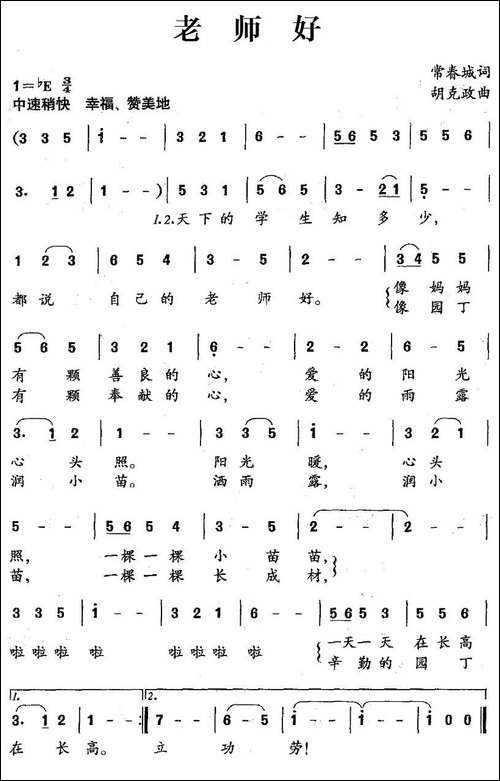 老师好
1=♭E 3/4
常春城词
中速稍快 幸福、赞美地
胡克政曲
(3 3 5 | i - - | 3 2 1 | 6 - - | 5 6 5 3 | 5 5 6 |
3. 1 2 | 1 - - ) | 5 3 1 | 5 6 5 | 3 - 2 1 | 5 - - |
1.2.天下的 学 生 知 多 少,
1 2 3 | 6 5 4 | 3 - 5 | 2 - - | 3 4 5 5 |
都说 自己的 老 师 好。 像 妈妈
像 园丁
5 6 5 | 3 2 1 | 6 - - | 2 - 2 | 6 - 5 |
有 颗 善良的 心, 爱 的 阳 光
有 颗 奉献的 心, 爱 的 雨 露
3. 1 2 | 1 - - | 3 3 5 | i - - | 3 2 1 |
心 头 照。 阳光 暖, 心头
润 小 苗。 洒雨 露, 润小
5 - - | 5 6 5 4 | 3 - 5 | 2 - - | 2 - - |
照, 一棵一棵 小 苗苗,
苗, 一棵一棵 长 成材,
3 3 5 | i - - | 3 2 1 | 6 - - | 5 6 5 3 | 5 5 6 |
啦啦啦 啦 啦啦啦 啦 一天一天 在长高
辛勤的 园丁
1. 2.
3. 1 2 | 1 - - :| 7 - 7 | 6 - 5 | i - - | i - - | i 0 0 ||
在长高。 立 功 劳!